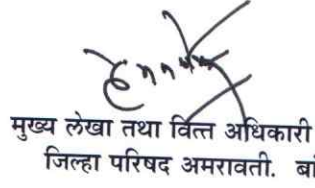 मुख्य लेखा तथा वित्त अधिकारी
जिल्हा परिषद अमरावती. बां